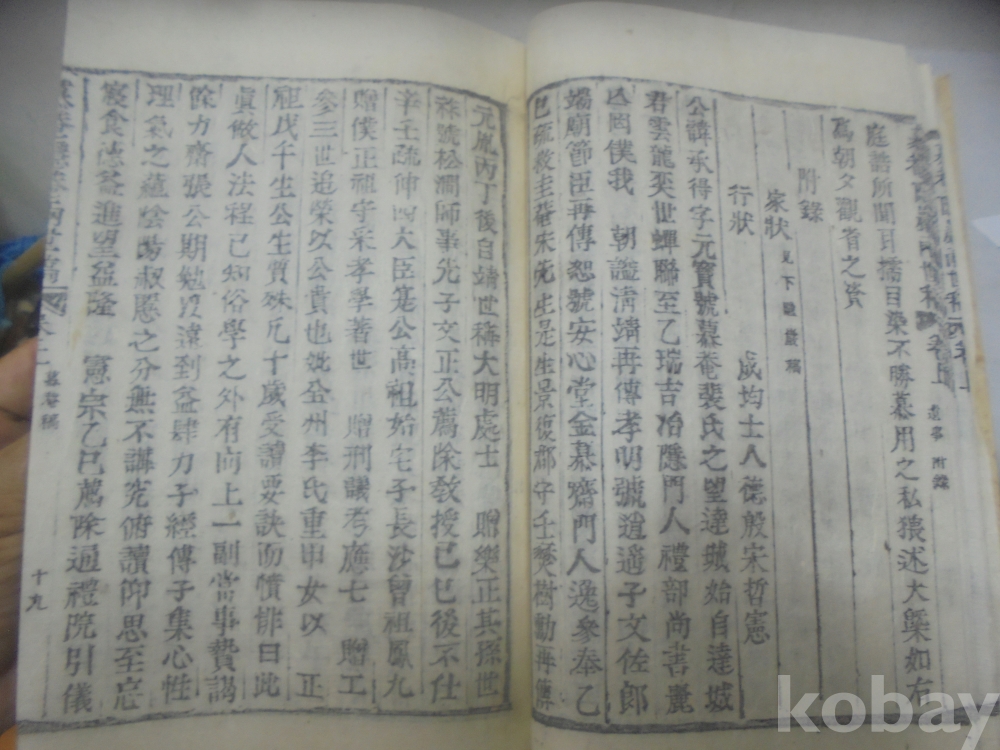 庭誥所聞耳擩目染不勝慕用之私猥述大槩如右
爲朝夕觀省之資
附錄
家狀 見下 巖稿
行狀 成均士人德殷宋哲憲
公諱承得字元寶號慕庵裴氏之望達城始自達城
君雲龍奕世蟬聯至乙瑞吉冶隱門人禮部尚書麗
亡罔僕我 朝謚淸靖再傳孝明號逍遙子文佐郎
端廟節臣再傳恕號安心堂金慕齋門人逸參奉乙
巳疏救圭菴宋先生是生景復郡守壬燹樹勳再傳
元胤丙丁後自靖世稱大明處士 贈樂正其孫世
號松澗師事尤子文正公薦除敎授己巳後不仕
辛壬疏伸四大臣寔公高祖始宅于長沙曾祖鳳九
贈僕正祖守采孝學著世 贈刑議考應七 贈工
參三世追榮以公貴也妣全州李氏重申女以 正
祖戊午生公生質殊凡十歲受讀要訣而憤悱曰此
眞做人法程已知俗學之外有向上一副當事贄謁
餘力齋張公期勉以遠到益肆力于經傳子集心性
理氣之蘊陰陽淑慝之分無不講究俯讀仰思至忘
寢食德益進望益隆 憲宗乙巳薦除通禮院引儀
慕庵稿
十九
附錄
kobay